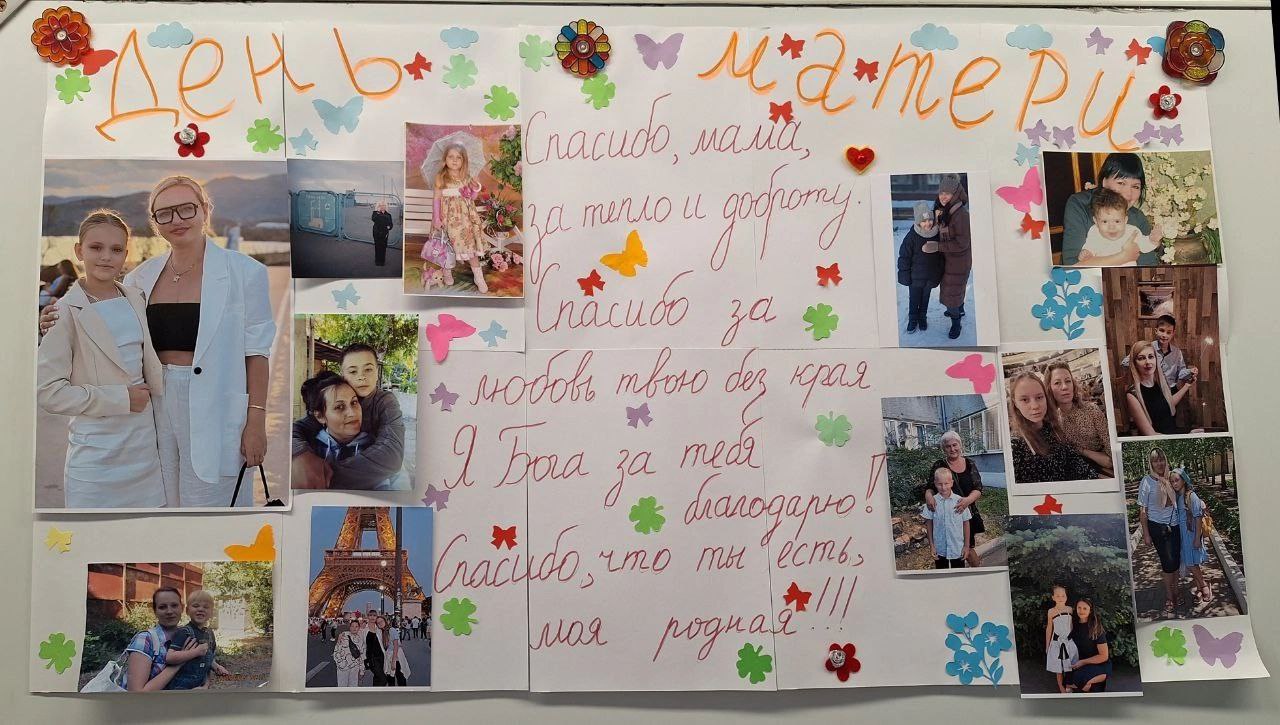 День матери
Спасибо, мама,
за тепло и доброту.
Спасибо за
любовь твою без края
Я Бога за тебя
благодарю!
Спасибо, что ты есть,
моя родная!!!